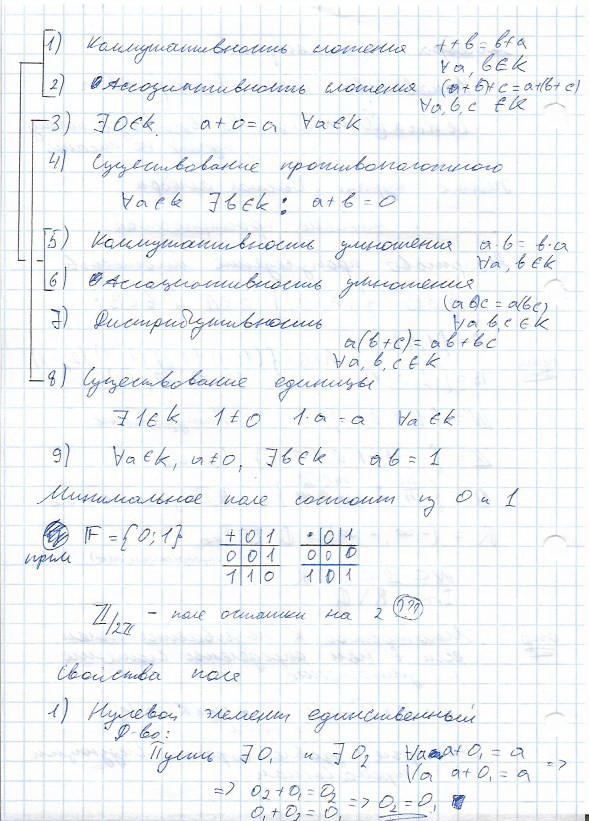 1) Коммутативность сложения ++b = b+a
∀a, b∈K
2) Ассоциативность сложения (a+b)+c = a+(b+c)
∀a,b,c ∈K
3) ∃0∈k. a+0=a ∀a∈K
4) Существование противоположного
∀a∈k ∃b∈k : a+b=0
5) Коммутативность умножения a·b = b·a
∀a, b∈K
6) Ассоциативность умножения
(ab)c = a(bc)
∀a,b,c∈K
7) Дистрибутивность
a(b+c) = ab+bc
∀a,b,c∈K
8) Существование единицы
∃1∈k 1≠0 1·a=a ∀a∈k
9) ∀a∈k, a≠0, ∃b∈k ab=1
Минимальное поле состоит из 0 и 1
прим 𝔽={0;1}
+ 0 1 · 0 1
0 0 1 0 0 0
1 1 0 1 0 1
ℤ/2ℤ – поле остатки на 2 ???
Свойства поле
1) Нулевой элемент единственный
Д-во:
Пусть ∃0₁ и ∃0₂ ∀a a+0₁=a
∀a a+0₁=a =>
=> 0₂+0₁=0₂
0₁+0₂=0₁ => 0₂=0₁